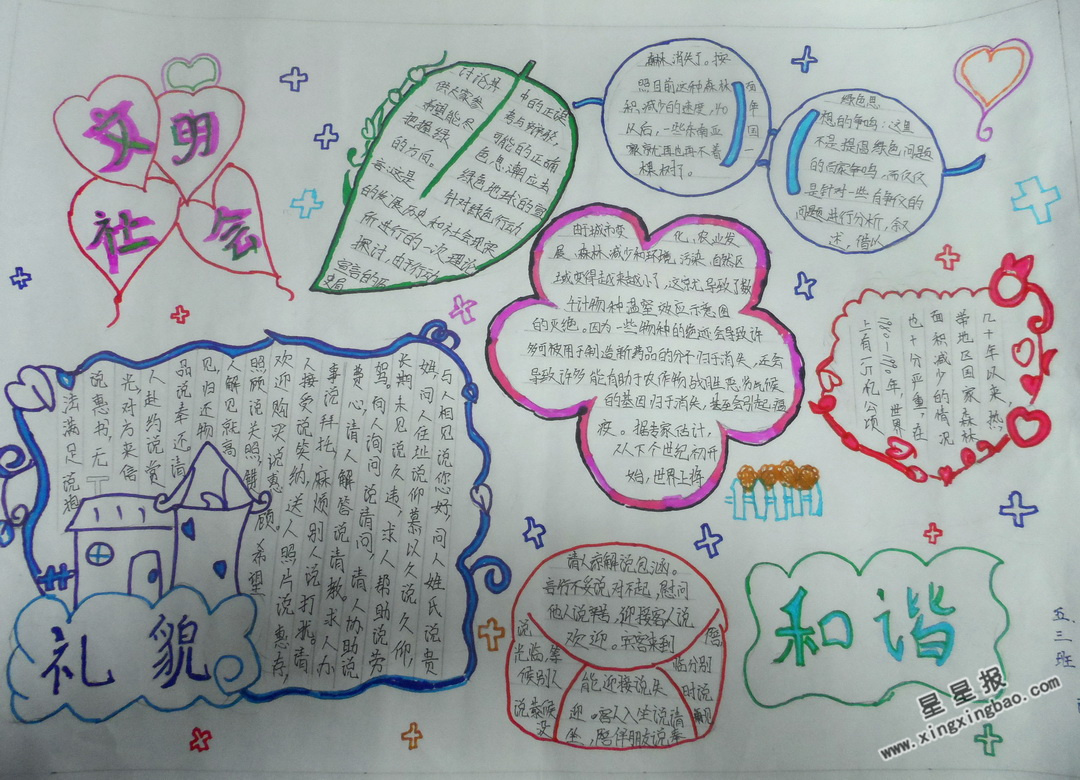 文明
社会
讨论并
供大家参
考里能尽
把握绿
的方向。
言:这是
的发展历史和社会现象
所进行的一次理论
探讨,由于行动
宣言的历
史局
中的正误
考与辨,
可能的正确
色思潮应去
绿色地球的家
针对绿色行动
森林消失了。按
照目前这种森林
积减少的速度,40
以后,一些东南亚
家就再也不着
棵树了。
百年国一
绿色思
想的争鸣:这里
不是提倡绿色问题
的百家争鸣,而仅仅
是针对一些自新义的
问题进行分析,叙
述,借以
由于城市变化,农业发
展,森林减少和环境污染,自然区
域变得越来越小了,这就导致了数
千计物种温室效应示意图
的灭绝。因为一些物种的绝迹会导致许
多可被用于制造新药品的分子归于消失,还会
导致许多能有助于农作物战胜恶劣气候
的基因归于消失,甚至会引起瘟
疫。据专家估计,
从下个世纪初开
始,世界上每
几十年以来,热
带地区国家森林
面积减少的情况
也十分严重,在
1980-1990年,世界
上有1.5亿公顷
与人相见说您好,问人姓氏说贵
姓,问人住址说仰慕以久说久仰,
长期未见说久违,求人帮助说劳
驾,向人询问说请问,请人协助说
费心,请人解答说请教。求人办
事说拜托,麻烦别人说打扰。请
人接受说笑纳,送人照片说惠存,
欢迎购买说惠顾,希望
照顾说关照,赞
人解见就高
见,归还物
品说奉还。请
人赴约说赏
光,对方来信
说惠书,无
法满足说抱
礼貌
请人谅解说包涵。
言行不妥说对不起,慰问
他人说辛苦,迎接客人说
欢迎。宾客来到
说
光临,等
候别人
说恭候没
能迎接说失
迎。客人入坐说请
坐,陪伴朋友说奉
陪,
临分别
时说
再见
和谐
五.三班
星星报
www.xingxingbao.com